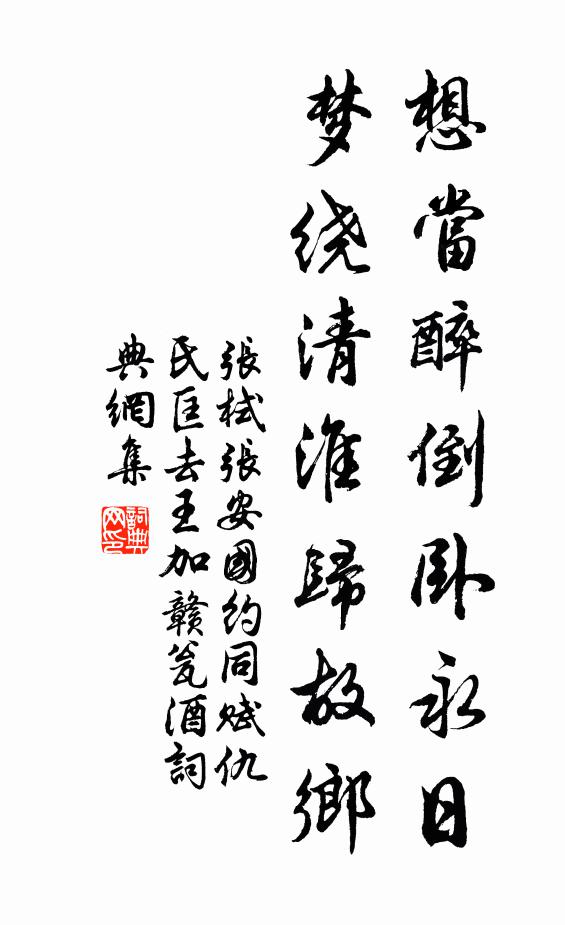 想當醉倒卧永日
梦绕清淮歸故鄉
張栻張安國約同赋仇
氏匡去王加贛瓮酒詞
典網集
詞典
网印